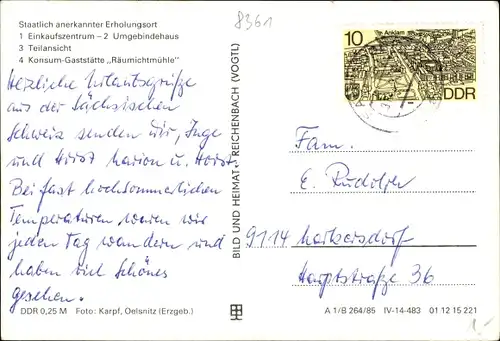 8361
Staatlich anerkannter Erholungsort
1 Einkaufszentrum – 2 Umgebindehaus
3 Teilansicht
4 Konsum-Gaststätte „Räumichtmühle"
Herzliche Urlaubsgrüße
aus der Sächsischen
Schweiz senden wir, Inge
und Horst Marion u. Horst.
Bei fast hochsommerlichen
Temperaturen waren wir
jeden Tag wandern und
haben viel Schönes
gesehen.
DDR 0,25 M Foto: Karpf, Oelsnitz (Erzgeb.)
BILD UND HEIMAT REICHENBACH (VOGTL)
10
Anklam
DDR
Fam.
E.
9114 Markersdorf
Hauptstraße 36
A 1/B 264/85 IV-14-483 01 12 15 221